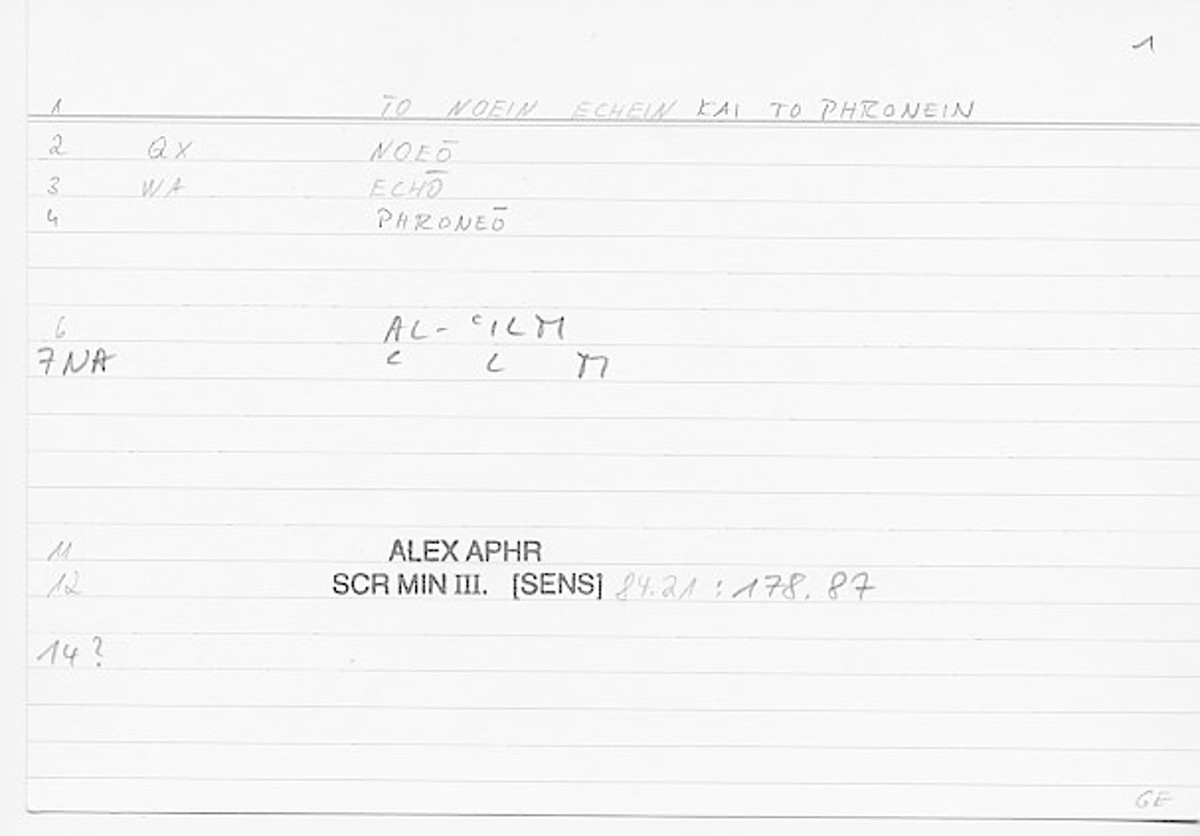 1
1 TO NOEIN ECHEIN KAI TO PHRONEIN
2 QX NOEŌ
3 WA ECHŌ
4 PHRONEŌ
6 AL-ʿILM
7 NA ʿ L M
11 ALEX APHR
12 SCR MIN III. [SENS] 84.21 : 178.87
14?
GE